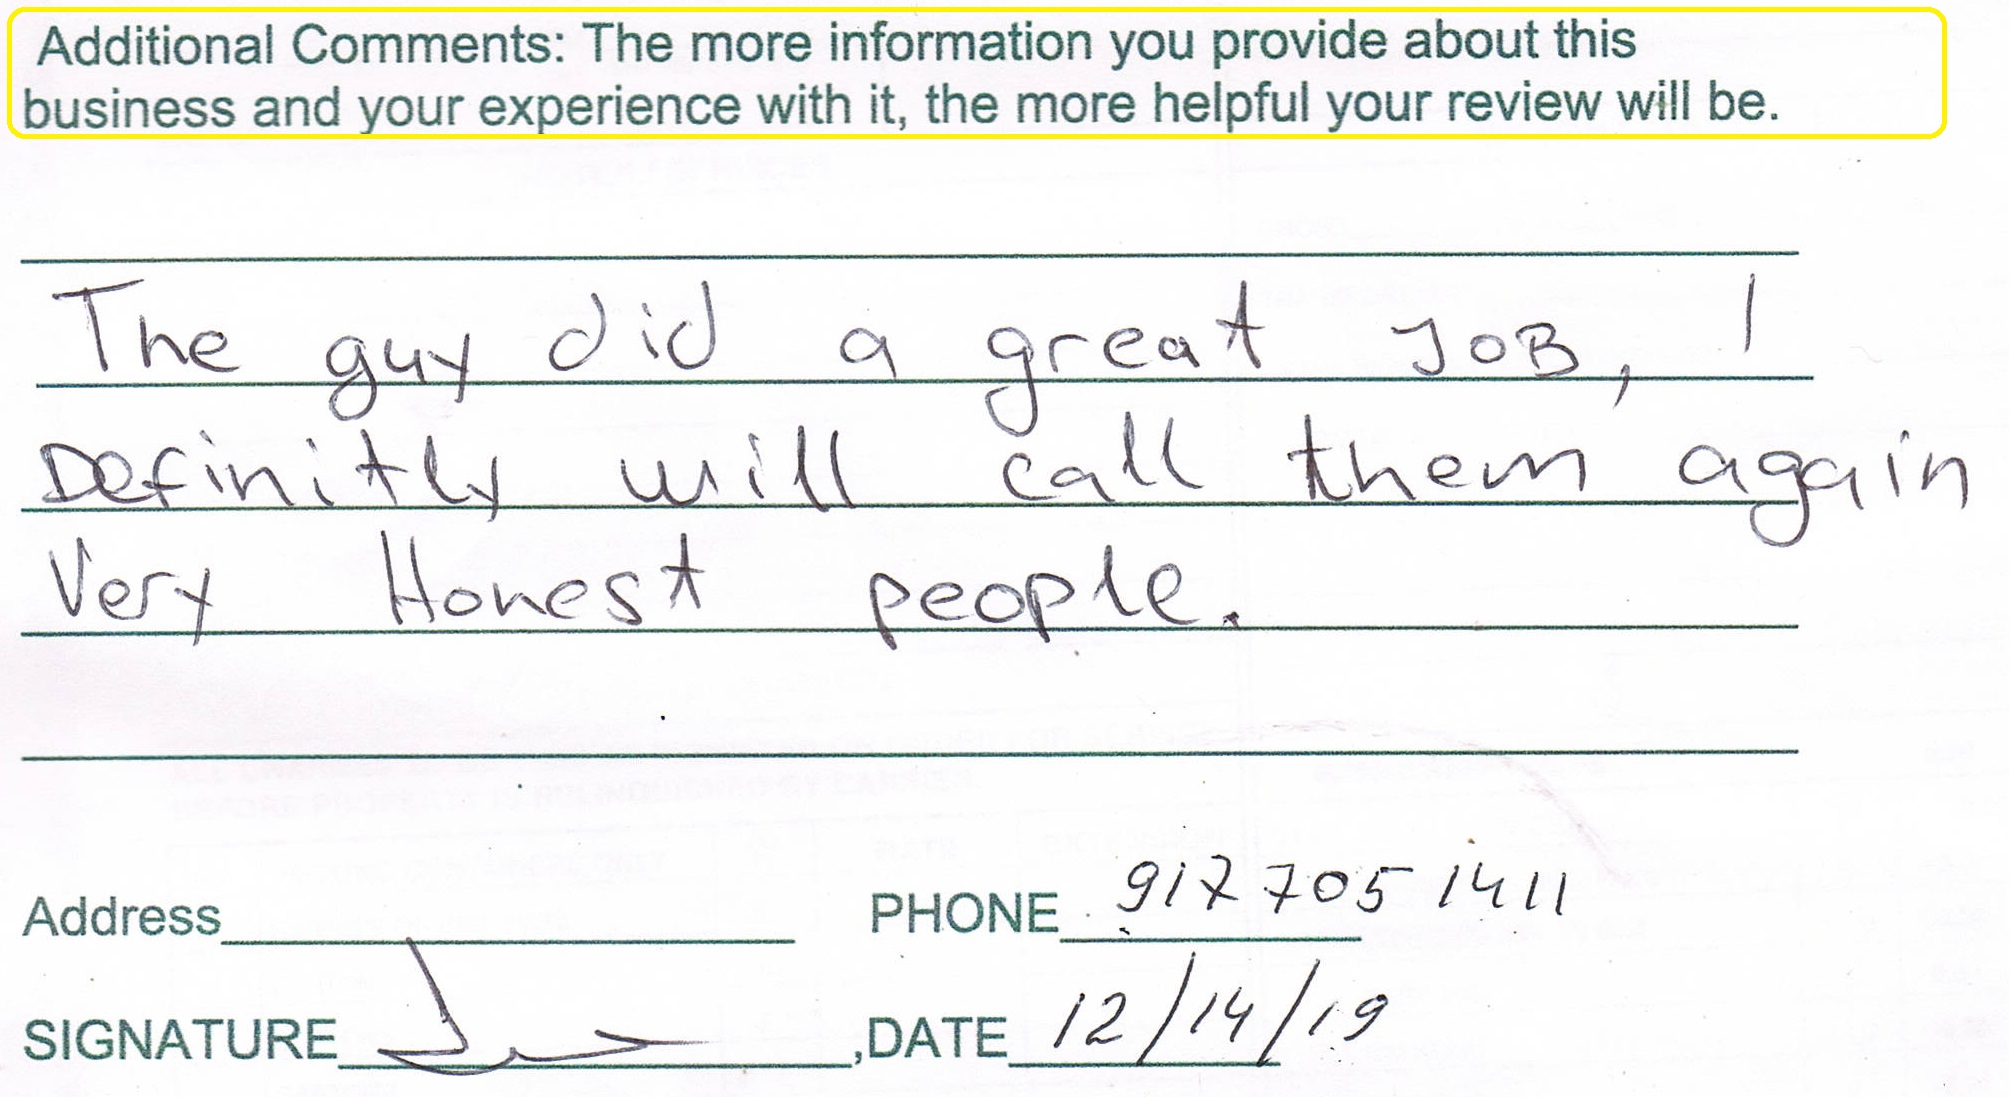 Additional Comments: The more information you provide about this
business and your experience with it, the more helpful your review will be.
The guy did a great JOB, I
Definitly will call them again
Very Honest people.
Address PHONE 917 705 1411
SIGNATURE ,DATE 12/14/19